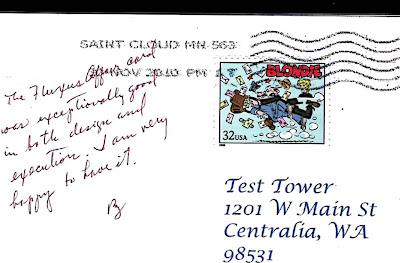 SAINT CLOUD MN 563
NOV 2010 PM 1 T
The Fluxus Affair card
was exceptionally good
in both design and
execution. I am very
happy to have it.
BLONDIE
32USA
Test Tower
1201 W Main St
Centralia, WA
98531